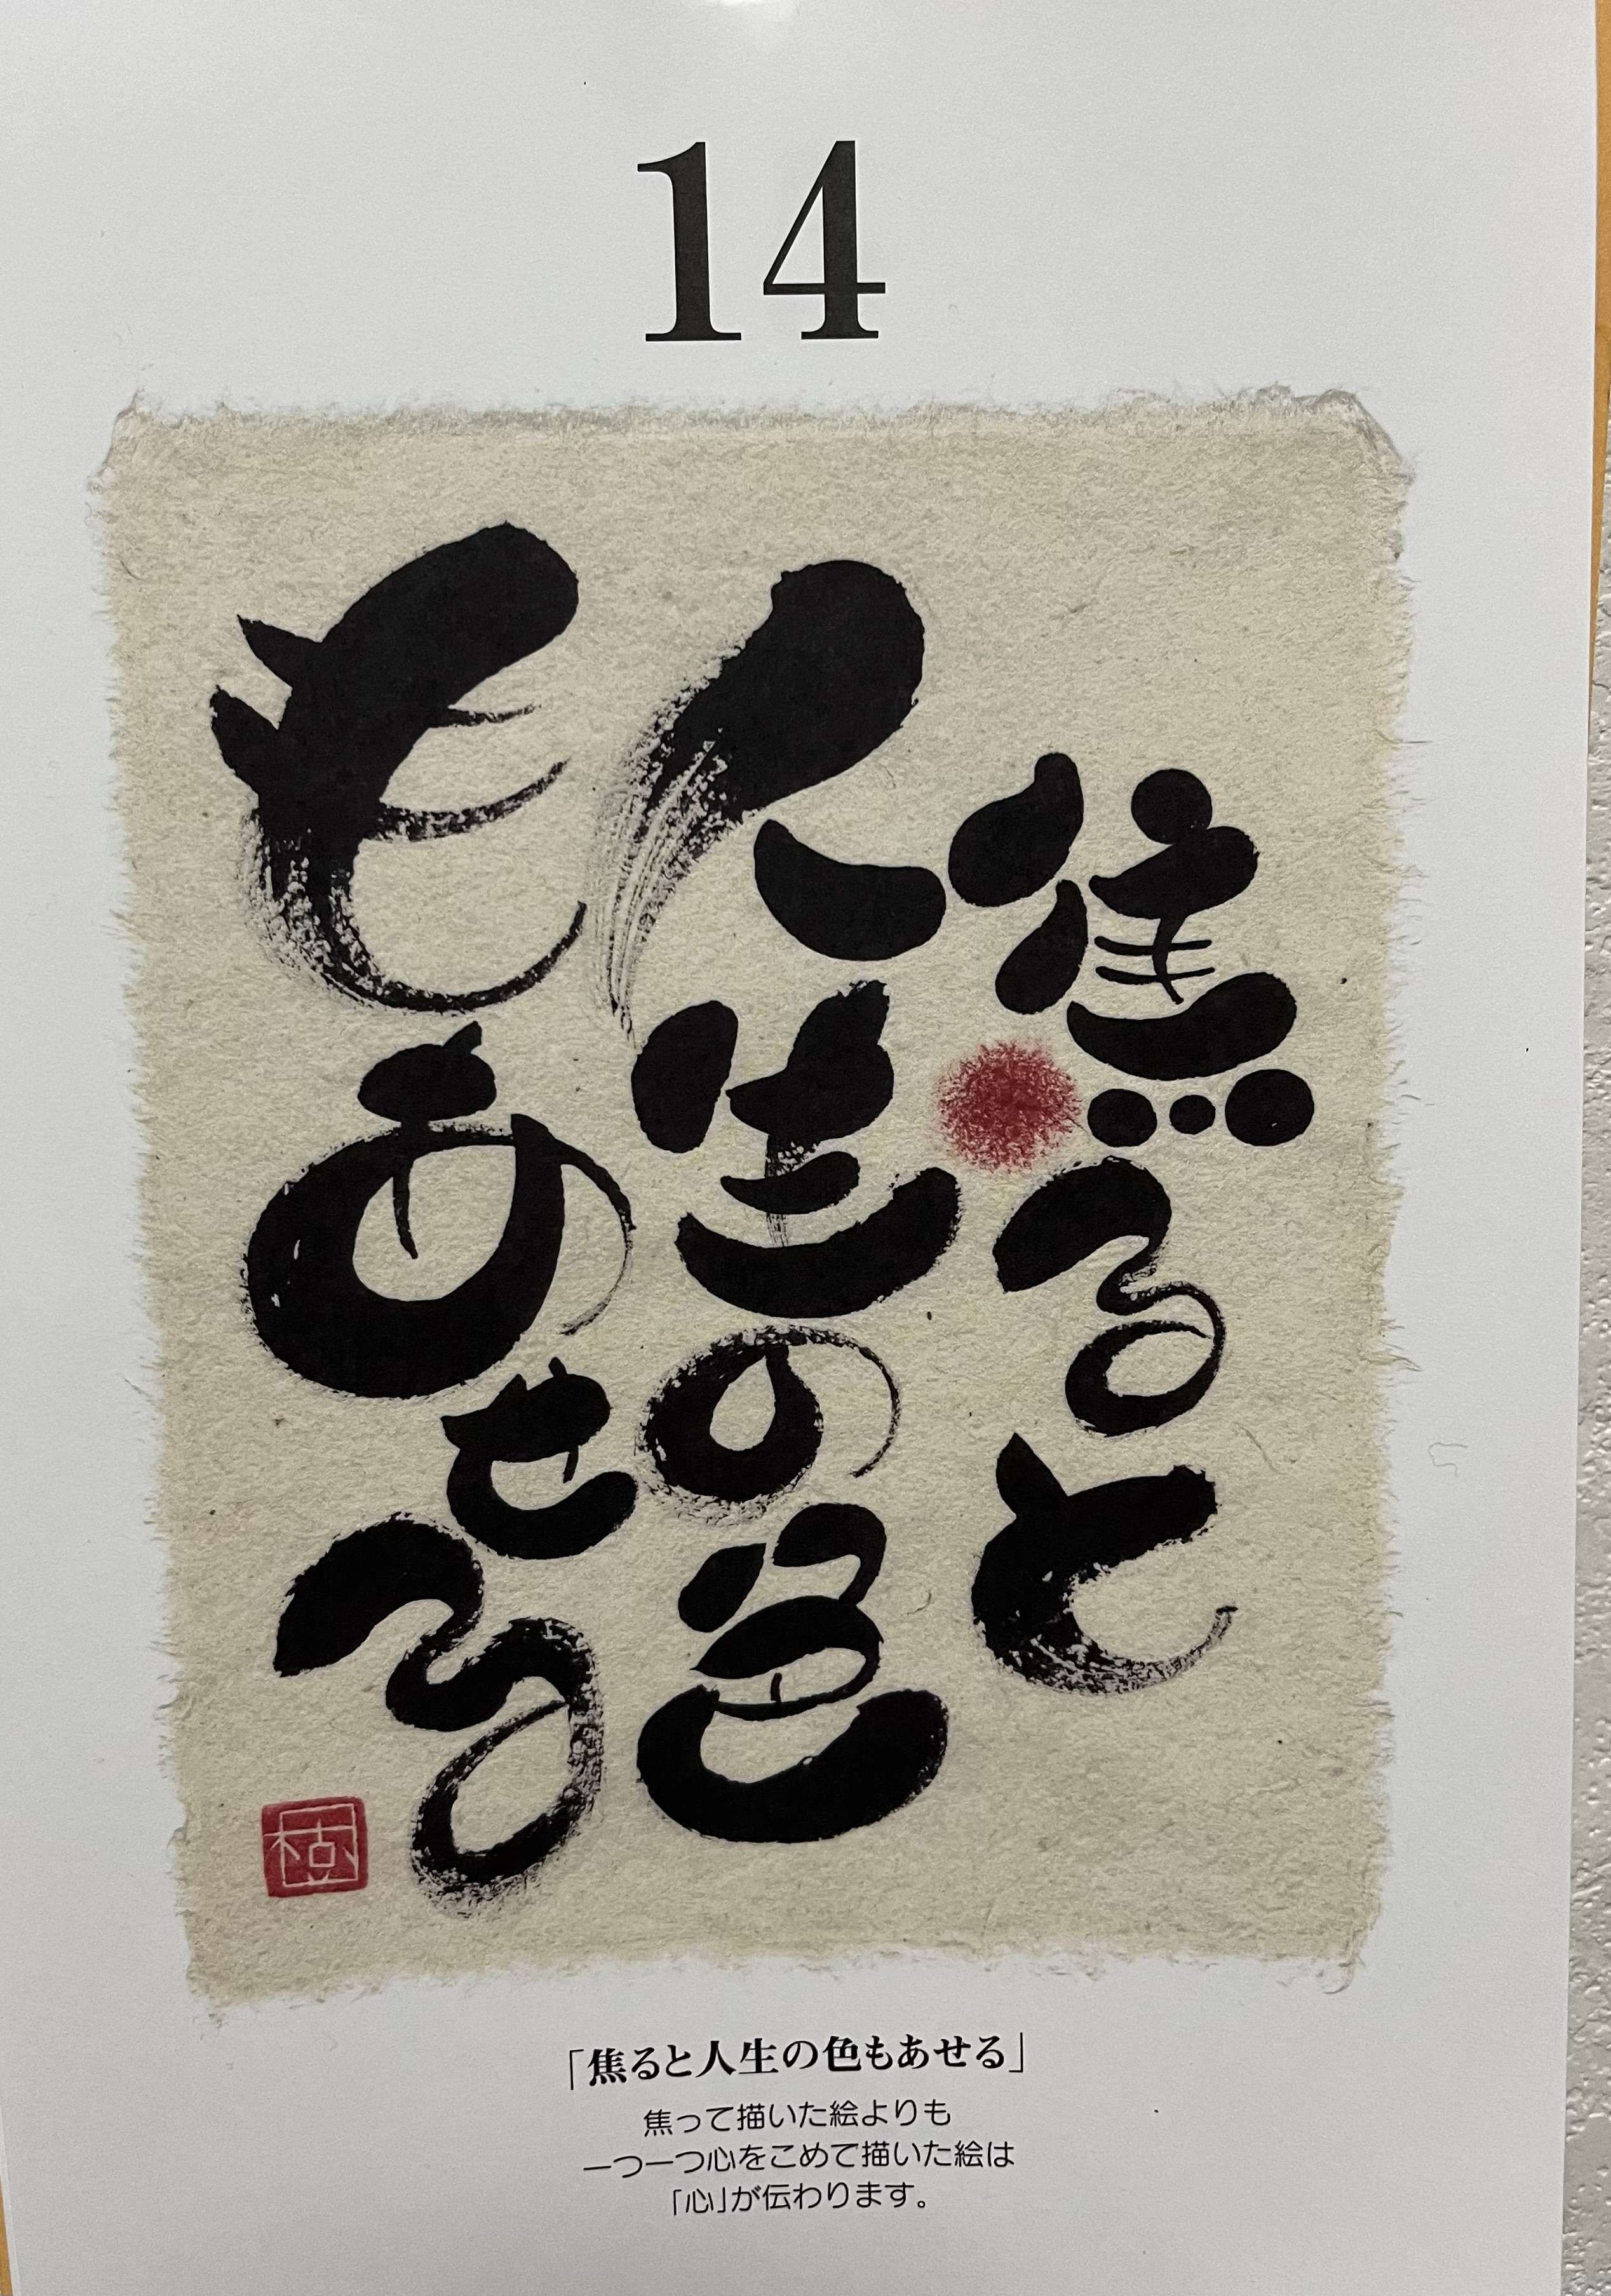 14
焦ると
人生の色
もあせる
「焦ると人生の色もあせる」
焦って描いた絵よりも
一つ一つ心をこめて描いた絵は
「心」が伝わります。